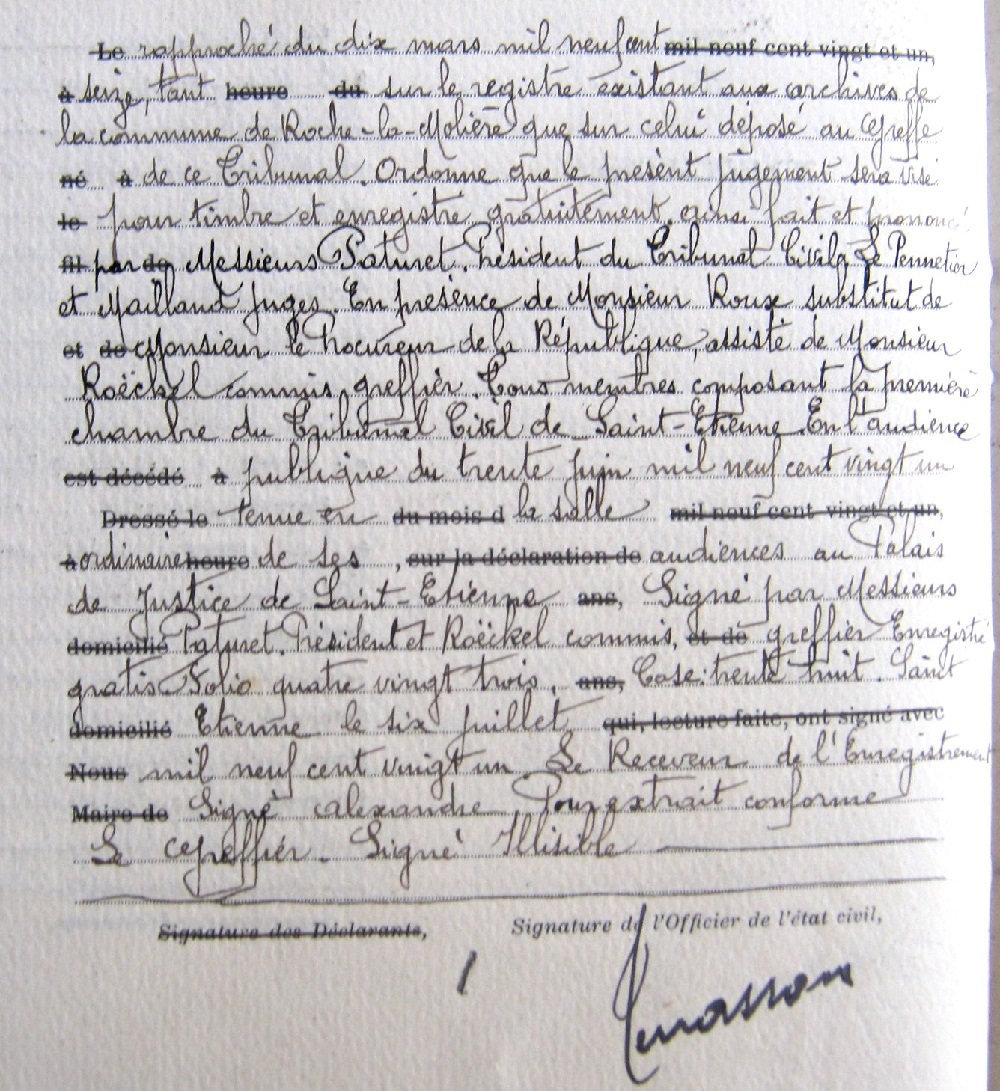 Le rapproché du dix mars mil neuf cent mil neuf cent vingt et un,
à seize, tant heure du sur le registre existant aux archives de
la commune de Roche-la-Molière que sur celui déposé au Greffe
né à de ce Tribunal. Ordonne que le présent jugement sera visé
le pour timbre et enregistre gratuitement, ainsi fait et prononcé
fil par de Messieurs Paturet. Président du Tribunal Civil, Le Pennetier
et Maillaud juges. En présence de Monsieur Roux substitut de
et de Monsieur le Procureur de la République, assisté de Monsieur
Roëckel commis, greffier. Tous membres composant la première
chambre du Tribunal Civil de Saint-Etienne. En l'audience
est décédé à publique du trente juin mil neuf cent vingt un
Dressé le tenue en du mois d la salle mil neuf cent vingt et un,
à ordinaire heure de ses , sur la déclaration de audiences au Palais
de Justice de Saint-Etienne ans, Signé par Messieurs
domicilié Paturet. Président et Roëckel commis, et de greffier Enregistré
gratis Folio quatre vingt trois, ans, Case: trente huit. Saint
domicilié Etienne le six juillet qui, lecture faite, ont signé avec
Nous mil neuf cent vingt un Le Receveur de l'Enregistrement
Maire de Signé alexandre Pour extrait conforme
Le Greffier. Signé Illisible
Signature des Déclarants, Signature de l'Officier de l'état civil,